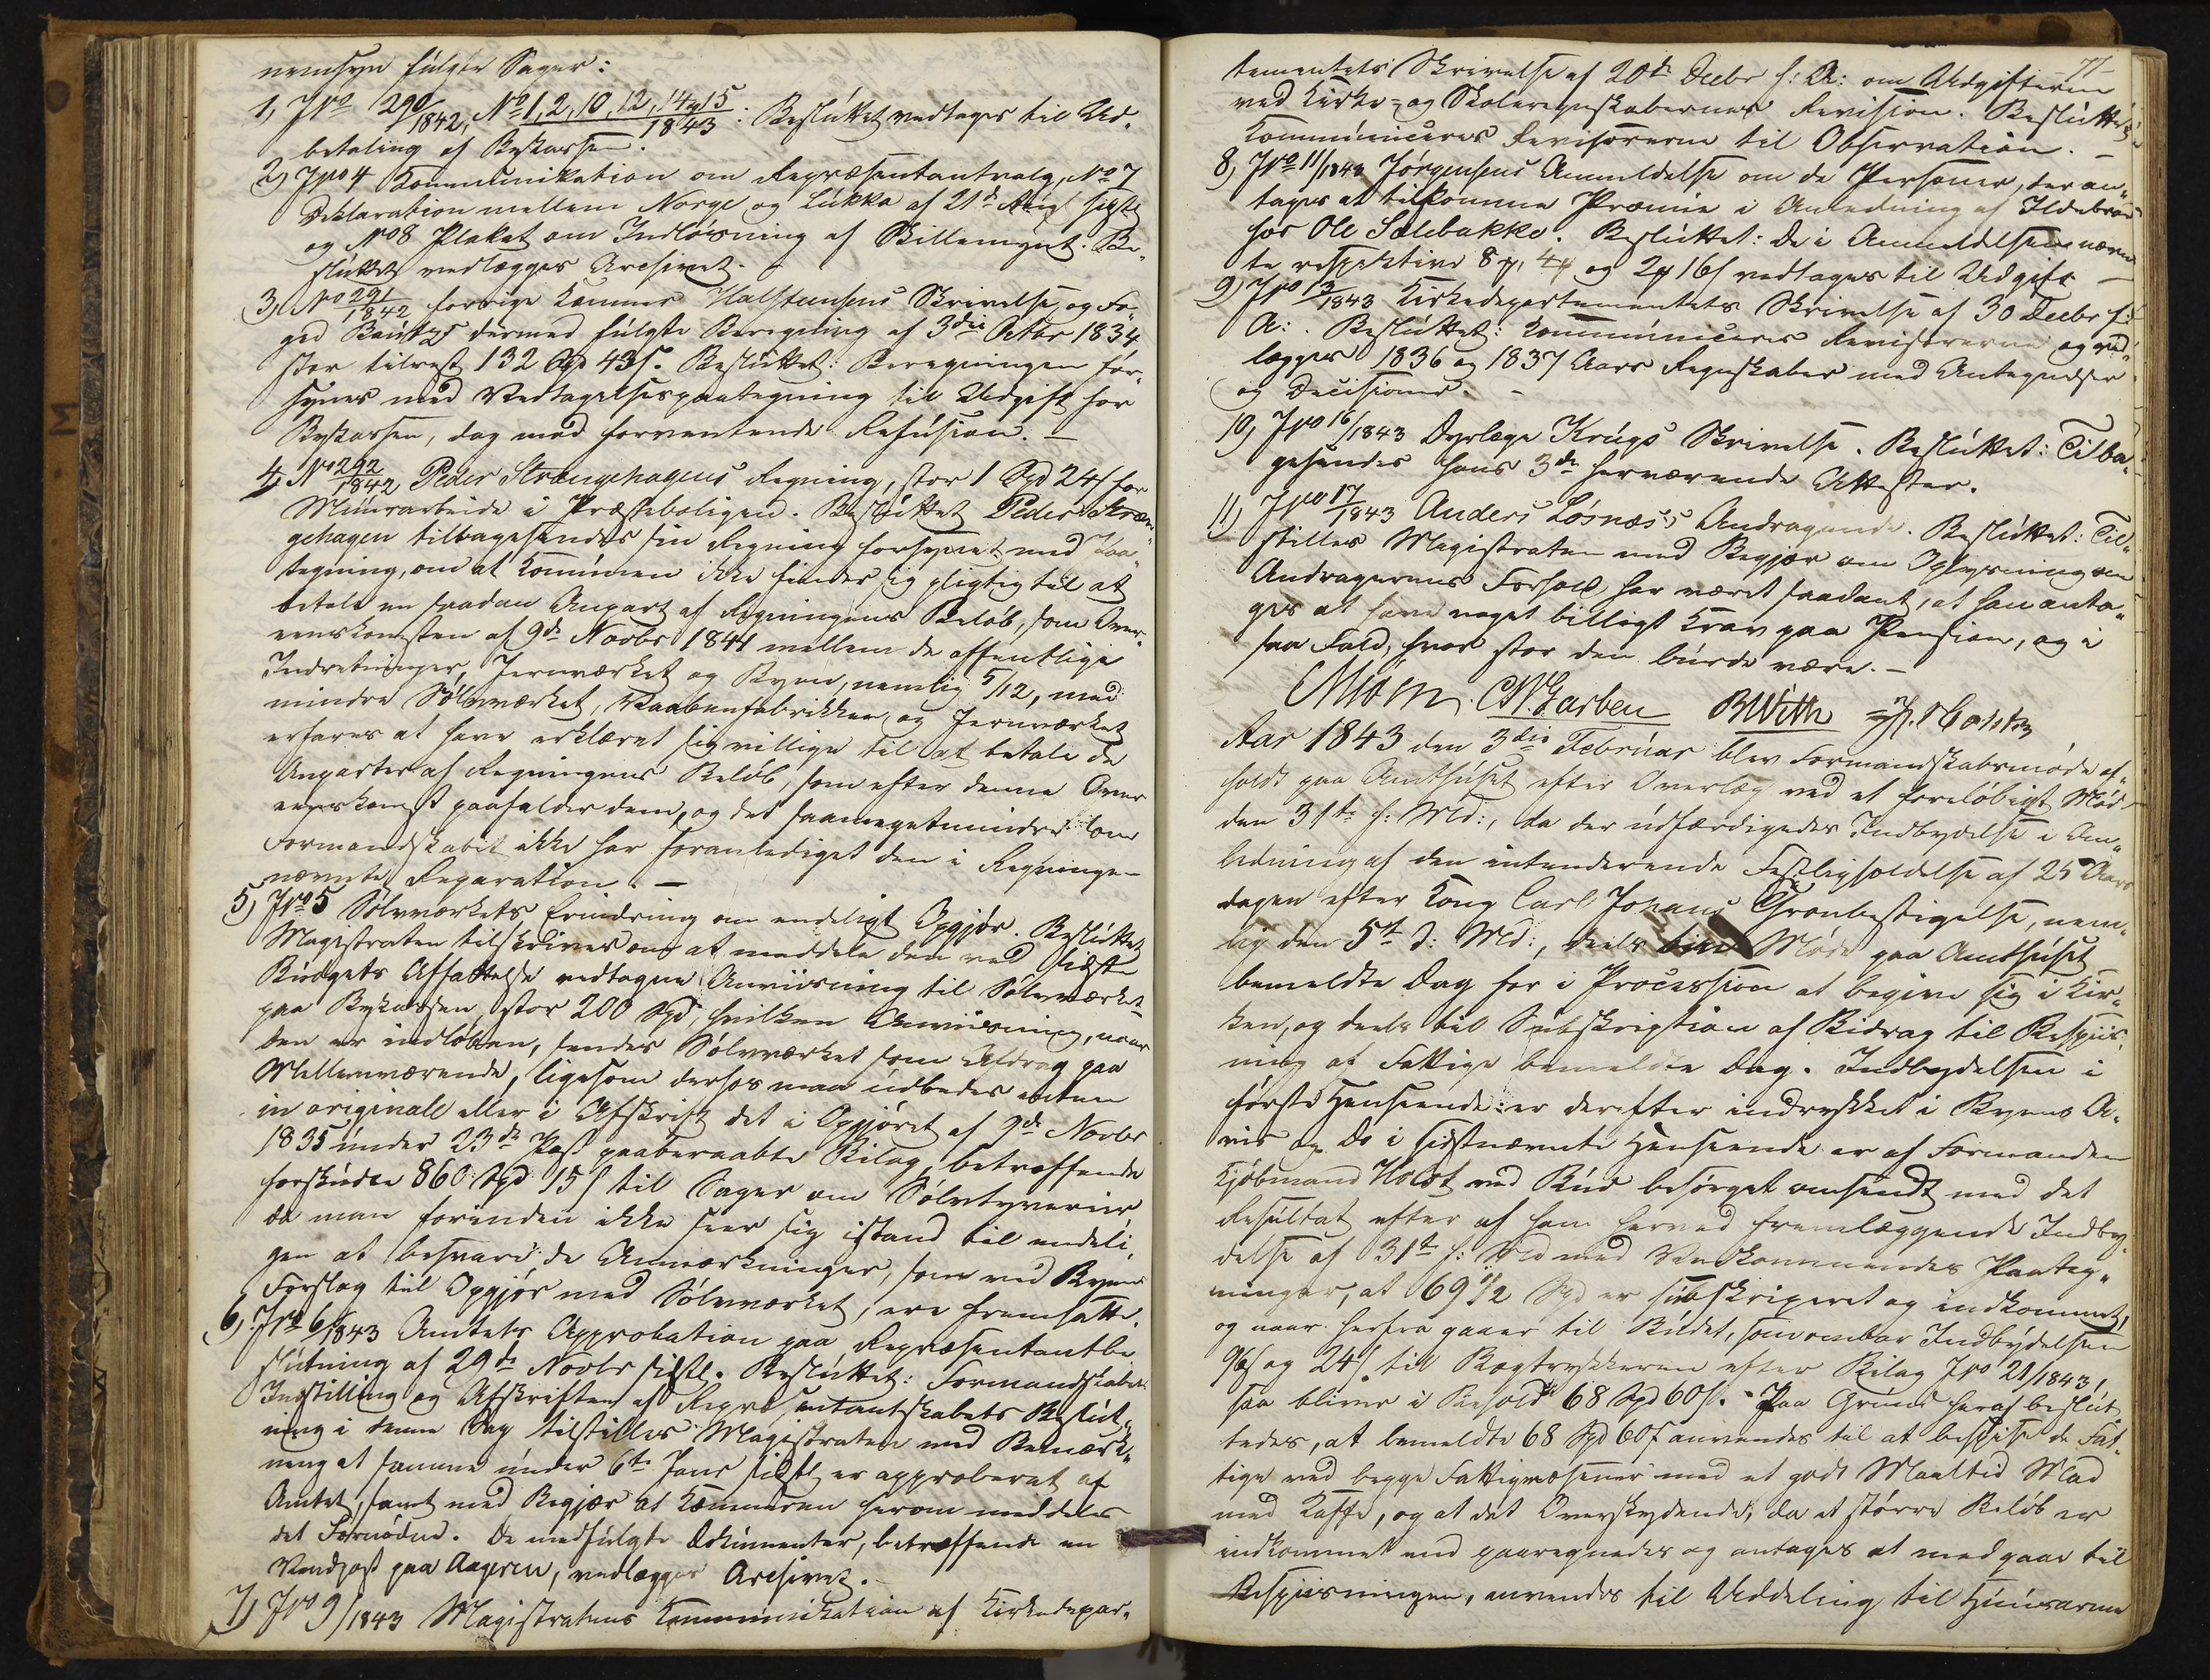 nemsyn fulgte Sager:
1, Jno 290/1842, No 1, 2, 10, 12, 14 & 15/1843: Besluttet vedtages til Ud-
betaling af Bykassen.
2) Jno 4 Kommunikation om Repræsentantvalg, No 7
Deklaration mellem Norge og Lukka af 21de Aug sidstl
og No 8 Plakat om Indløsning af Skillemynt. Be-
sluttet vedlægges Archivet.
3) No 291/1842 forrige Kæmner Halstensens Skrivelse, og Fo-
ged Bautz's dermed fulgte Beregning af 3die Octbr 1834
stor tilrest 132 Spd 43 s. Besluttet: Beregningen for-
synes med Vedtagelsespaategning til Udgift for
Bykassen, dog mod forventende Refusion. —
4, No 292/1842 Peder Strængehagens Regning, stor 1 Spd 24 s for
Muurarbeide i Præsteboligen. Besluttet Peder Stræn-
gehagen tilbagesendes sin Regning forsynet med Paa-
tegning, om at Kommunen ikke finder sig pligtig til at
betale en saadan Anpart af Regningens Beløb, som Over-
eenskomsten af 9de Novbr 1841 mellem de offentlige
Indretninger, Jernværket og Byen, nemlig 5/12, med
mindre Sølvværket, Vaabenfabrikken og Jernværket
erfares at have erklæret sig villige til at betale de
Anparter af Regningens Beløb, som efter denne Over-
eenskomst paafalder dem, og det saameget mindre som
Formandskabet ikke har foranlediget den i Regningen
nævnte Reparation. —
5) Jno 5 Sølvværkets Erindring om endeligt Opgjør. Besluttet
Magistraten tilskrives om at meddele den ved sidste
Budgets Affattelse vedtagne Anviisning til Sølvværket
paa Bykassen, stor 200 Spd, hvilken Anviisning, naar
den er indløben, sendes Sølvværket som Afdrag paa
Mellemværende, ligesom derhos maa udbedes enten
in originale eller i Afskrift det i Opgjøret af 9de Novbr
1835 under 23de Post paaberaabte Bilag, betræffende
forskudte 860 Spd 15 s til Sager om Sølvtyverier
da man forinden ikke seer sig istand til endeli-
gen at besvare de Anmærkninger, som ved Byens
Forslag til Opgjør med Sølvværket, ere fremsatte.
6, Jno 6/1843 Amtets Approbation paa Repræsentantbe
slutning af 29de Novbr sidstl. Besluttet: Formandskabets
Indstilling og Afskriften af Repræsentantskabets Beslut-
ning i denne Sag tilstilles Magistraten med Bemærk-
ning at samme under 6te Janr sidstl er approberet af
Amtet, samt med Begjær at Kæmneren herom meddeles
det Fornødne. De medfulgte Dokumenter, betræffende en
Vandpost paa Aageren, vedlægges Archivet.
7) Jno 9/1843 Magistratens Kommunikation af Kirkedepar-
77
tementets Skrivelse af 20de Decbr f: A: om Udgifterne
ved Kirke- og Skoleregnskabernes Revision. Besluttet
Kommuniceres Revisorerne til Observation. —
8, Jno 11/1843 Jørgensens Anmeldelse om de Personer, der an-
tages at tilkomme Præmie i Anledning af Ildebrand
hos Ole Solebakke. Besluttet: De i Anmeldelsen nævn
te respektive 8, 4 og 2 16 s vedtages til Udgift —
9, Jno 13/1843 Kirkedepartementets Skrivelse af 30 Decbr f:
A: . Besluttet: Kommuniceres Revisorerne og ved-
lægges 1836 og 1837 Aars Regnskaber med Antegnelser
og Decisioner. —
10, Jno 16/1843 Dyrlæge Krugs Skrivelse. Besluttet: Tilba-
gesendes hans 3de herværende Attester.
11, Jno 17/1843 Anders Løsnæs's Andragende. Besluttet: Til-
stilles Magistraten med Begjær om Oplysning om
Andragerens Forhold har været saadant, at han anta-
ges at have noget billigt Krav paa Pension, og i
saa Fald, hvor stor den burde være. —
CN Garben BWitth
Aar 1843 den 3die Februar blev Formandskabsmøde af-
holdt paa Amthuset efter Overlæg ved et foreløbigt Møde
den 31te f: Md:, da der udfærdigedes Indbydelse i An-
ledning af den intenderende Festligholdelse af 25 Aars
dagen efter Kong Carl Johans Thronbestigelse, nem-
lig den 5te d: Md:, deels til Møde paa Amthuset
bemeldte Dag for i Procession at begive sig i Kir-
ken, og deels til Subskription af Bidrag til Bespiis-
ning af Fattige bemeldte Dag. Indbydelsen i
første Henseende er derefter indrykket i Byens A-
vis og do i sidstnævnte Henseende er af Formanden
Kjøbmand Holst ved Bud besørget omsendt med det
Resultat efter af ham herved fremlæggende Indby-
delse af 31te f: Md med Vedkommendes Paateg-
ninger, at 69 1/2 Spd er subskriperet og indkommet,
og naar herfra gaaer til Budet, som ombar Indbydelsen
96 s og 24 s til Bogtrykkeren efter Bilag Jno 21/1843,
saa bliver i Behold 68 Spd 60 s. Paa Grund heraf beslut-
tedes, at bemeldte 68 Spd 60 s anvendes til at bespise de Fat-
tige ved begge Fattigvæsener med et godt Maaltid Mad
med Kaffe, og at det Overskydende, da et større Beløb er
indkommet end paaregnedes og antages at medgaae til
Bespiisningen, anvendes til Uddeling til Huusarme